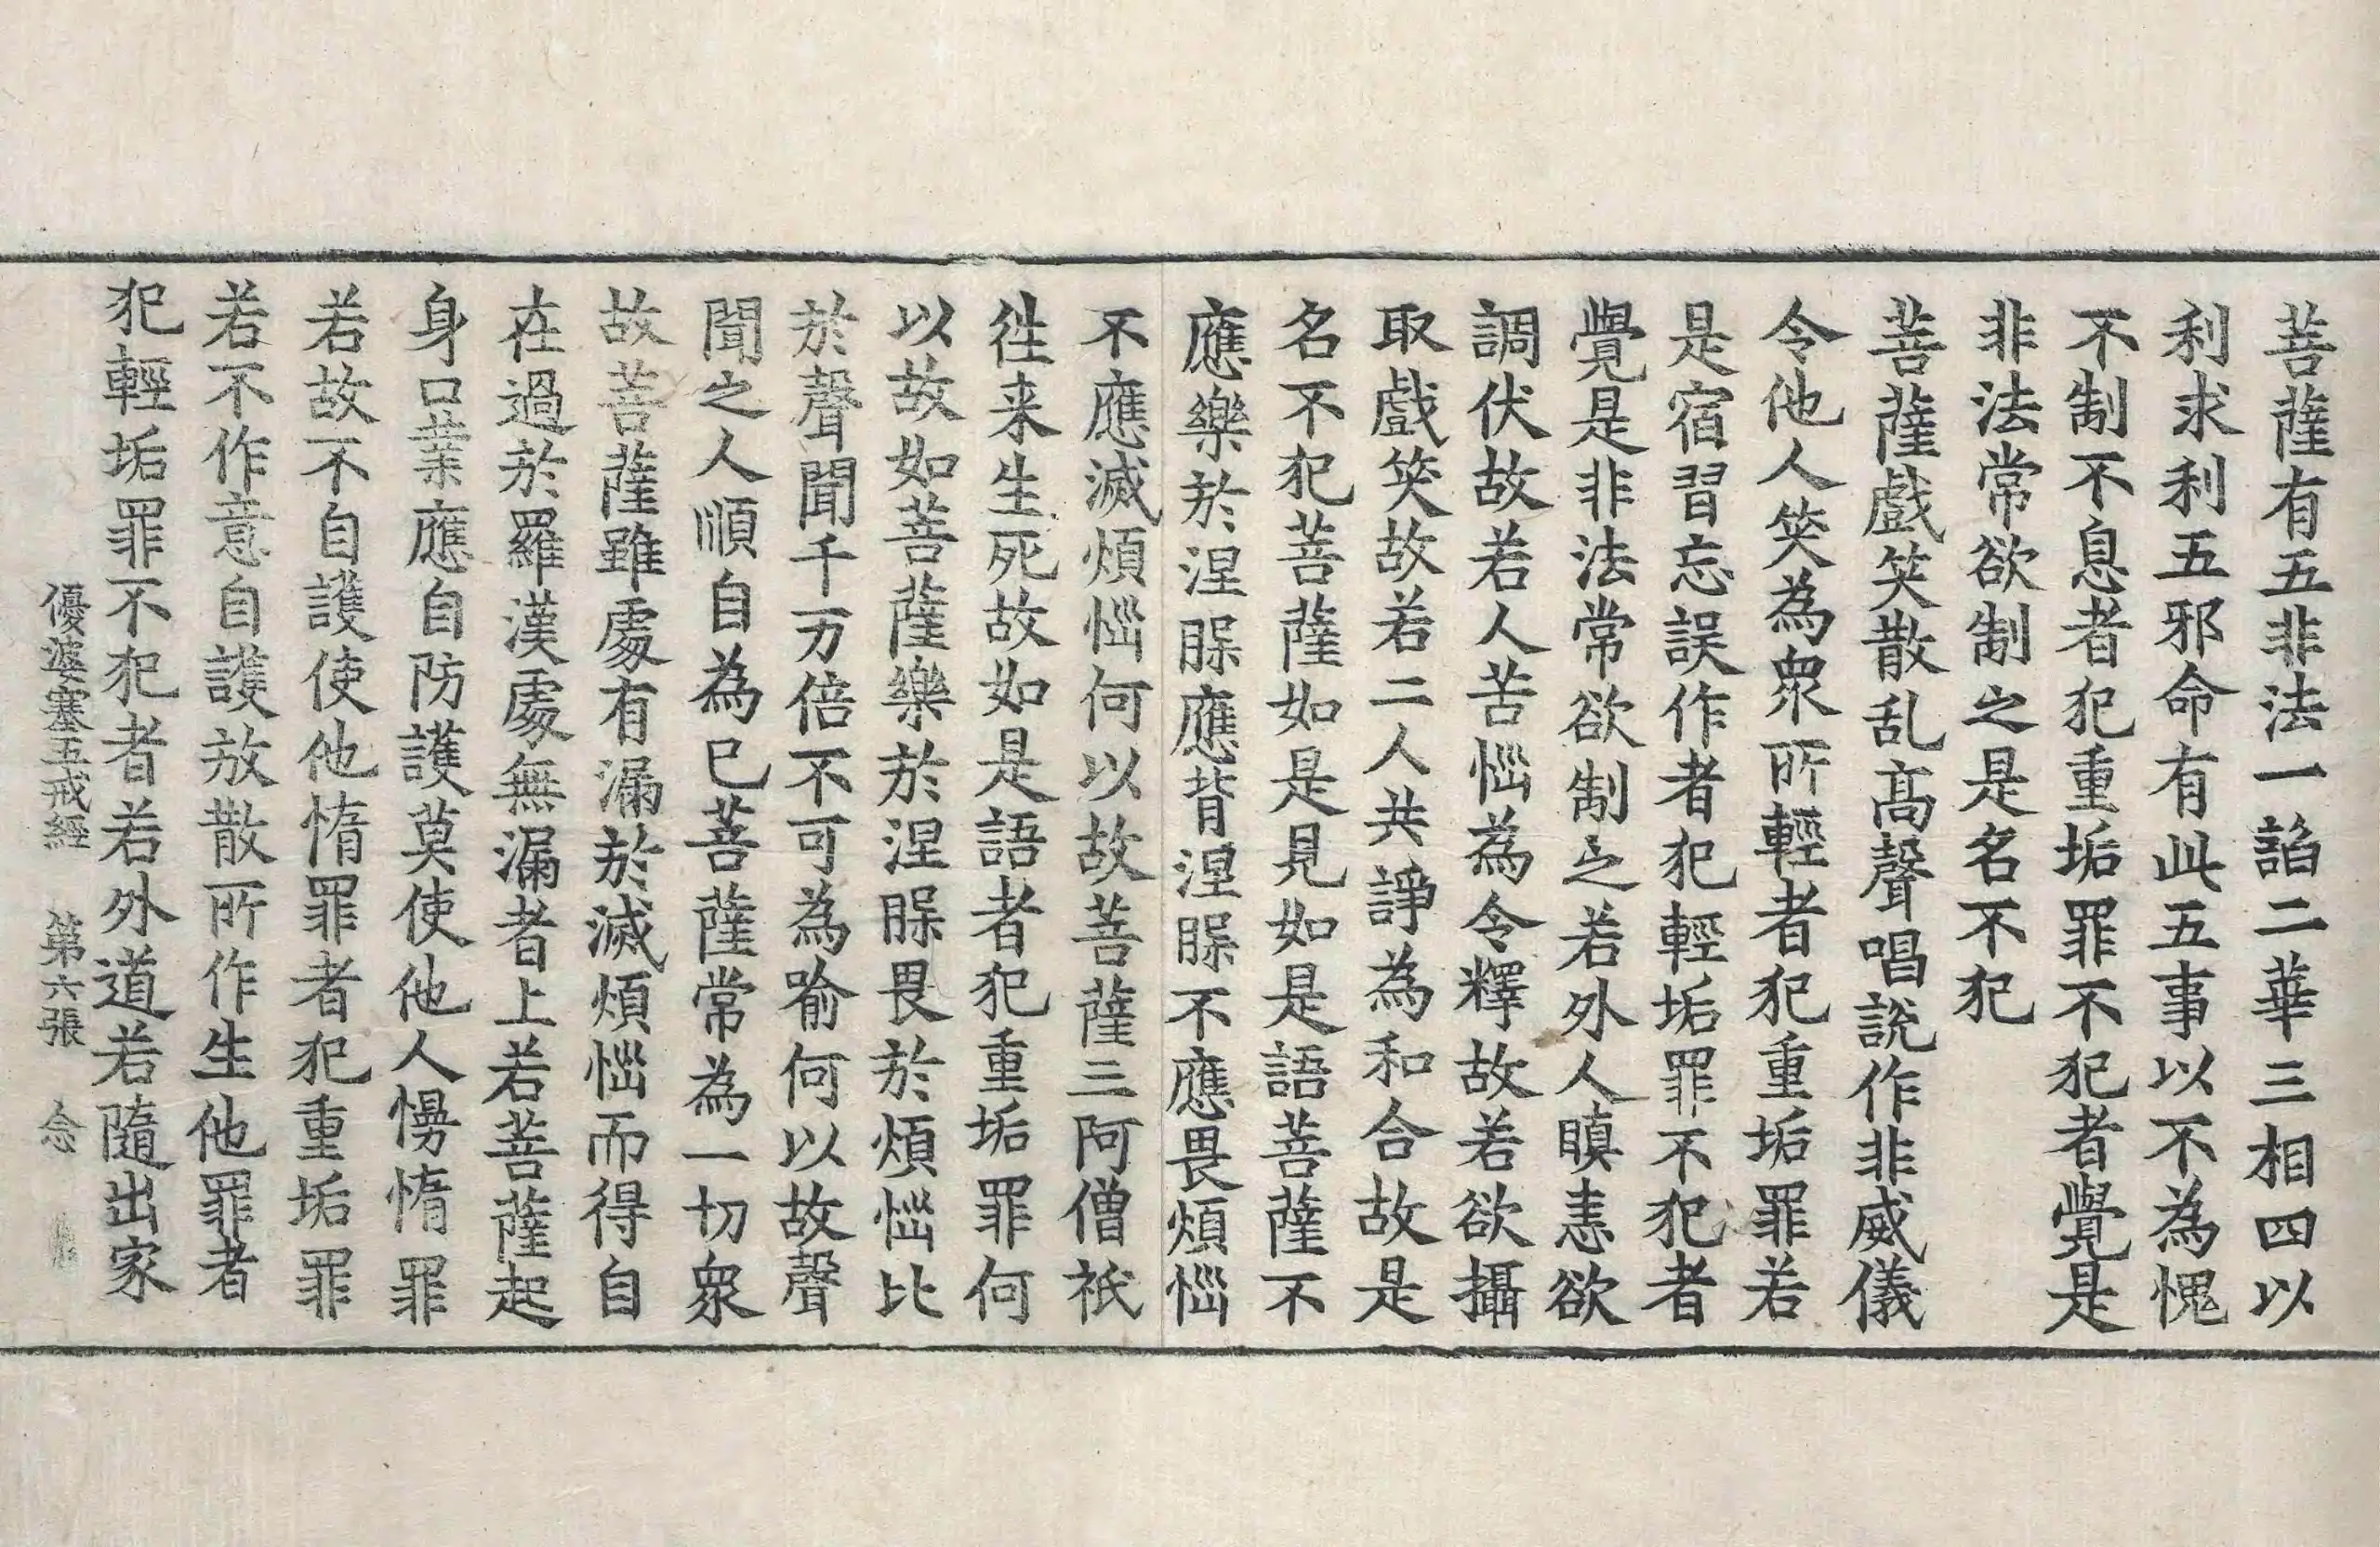 菩薩有五非法一諂二華三相四以
利求利五邪命有此五事以不為愧
不制不息者犯重垢罪不犯者覺是
非法常欲制之是名不犯
菩薩戲笑散乱高聲唱說作非威儀
令他人笑為衆所輕者犯重垢罪若
是宿習忘誤作者犯輕垢罪不犯者
覺是非法常欲制之若外人瞋恚欲
調伏故若人苦惱為令釋故若欲攝
取戲笑故若二人共諍為和合故是
名不犯菩薩如是見如是語菩薩不
應樂於涅槃應背涅槃不應畏煩惱
不應滅煩惱何以故菩薩三阿僧祇
往来生死故如是語者犯重垢罪何
以故如菩薩樂於涅槃畏於煩惱比
於聲聞千万倍不可為喻何以故聲
聞之人順自為已菩薩常為一切衆
故菩薩雖處有漏於滅煩惱而得自
在過於羅漢處無漏者上若菩薩起
身口業應自防護莫使他人慢惰罪
若故不自護使他惰罪者犯重垢罪
若不作意自護放散所作生他罪者
犯輕垢罪不犯者若外道若隨出家
優婆塞五戒經 第六張 念